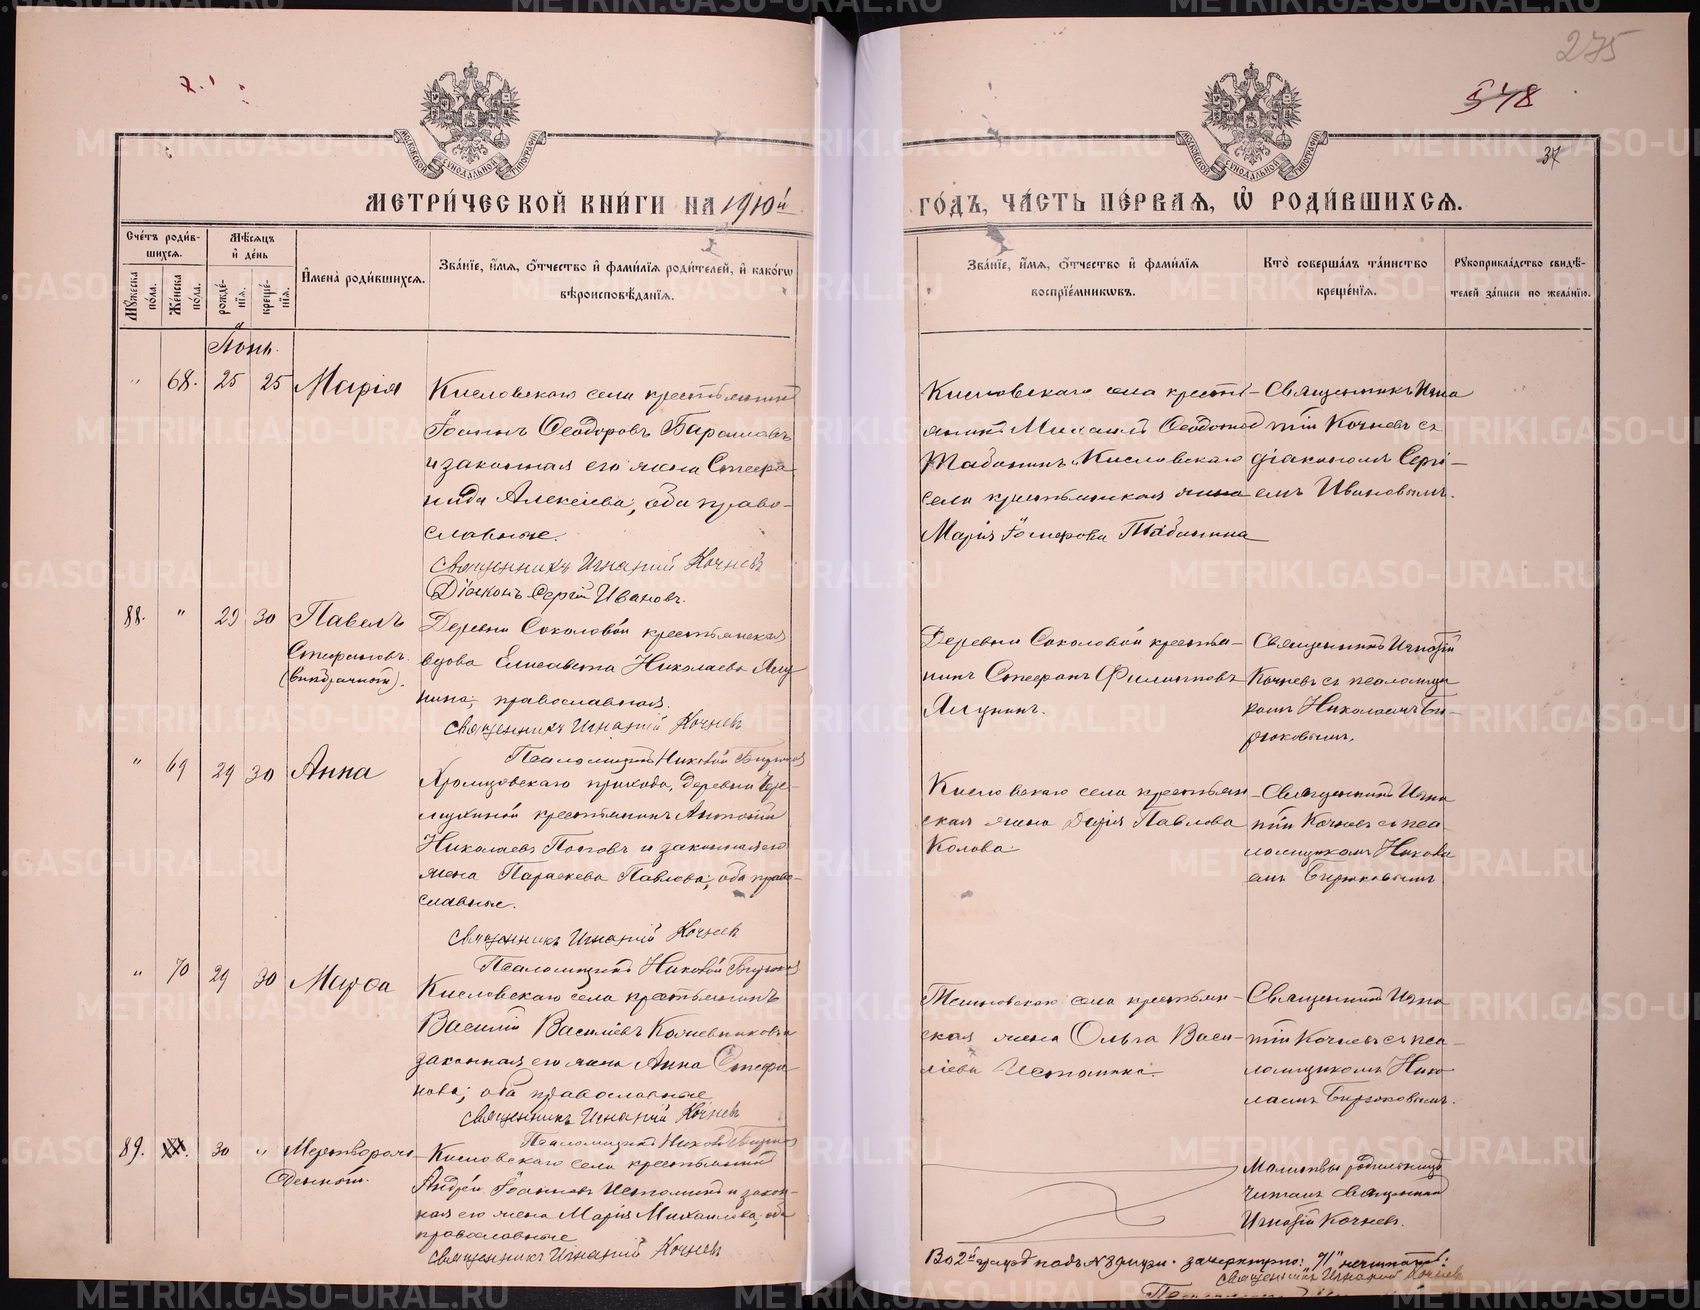 275
548
37
МЕТРИ́ЧЕСКОЙ КНИ́ГИ НА 1910й
ГО́ДЪ, ЧА́СТЬ ПЕ́РВАЯ, Ѡ҆ РОДИ́ВШИХСЯ.
Сче́тъ роди́в-
шихся.
Мѣ́сяцъ
и҆ де́нь
Му́жеска
по́ла.
Же́нска
по́ла.
рожде́-
нїя.
креще́-
нїя.
И҆мена̀ роди́вшихся.
Зва́нїе, и҆́мя, ѻ҆́тчество и҆ фами́лїя роди́телей, и҆ како́гѡ
вѣроисповѣ́данїя.
Зва́нїе, и҆́мя, ѻ҆́тчество и҆ фами́лїя
воспрїе́мникѡвъ.
Кто̀ соверша́лъ та́инство
креще́нїя.
Рꙋкоприкла́дство свидѣ́-
телей за́писи по жела́нїю.
Іюнь.
" 68. 25 25 Марія
Кисловскаго села крестьянинъ
Іоаннъ Ѳеодоровъ
и законная его жена Стефа-
нида Алексіева; оба право-
славные.
Священникъ Игнатій Кочневъ
Діаконъ Сергій Ивановъ.
Кисловскаго села крестья-
нинъ Михаилъ
Табанинъ Кисловскаго
села крестьянская жена
Марія Табанина
Священникъ Игна
тій Кочневъ съ
діакономъ Сергі-
емъ Ивановымъ.
88. " 29 30 Павелъ
Стефановъ
(внѣбрачный).
Деревни Соколовой крестьянская
вдова Елисавета Николаева Ялу
нина; православная.
Священникъ Игнатій Кочневъ
Псаломщикъ Николай Бирюковъ
Деревни Соколовой крестья-
нинъ Стефанъ Филипповъ
Ялунинъ.
Священникъ Игнатій
Кочневъ съ псаломщи
комъ Николаемъ Би-
рюковымъ.
" 69 29 30 Анна
Хромцовскаго прихода, деревни
крестьянинъ Антоній
Николаевъ Поповъ и законная его
жена Параскева Павлова; оба право-
славные.
Священникъ Игнатій Кочневъ
Псаломщикъ Николай Бирюковъ
Кисловскаго села крестьян-
ская жена Дарія Павлова
Колова.
Священникъ Игна
тій Кочневъ съ пса-
ломщикомъ Никола
емъ Бирюковымъ
" 70 29 30 Марѳа
Кисловскаго села крестьянинъ
Василій Василіевъ Кожевниковъ и
законная его жена Анна Стефа-
нова; оба православные
Священникъ Игнатій Кочневъ
Псаломщикъ Николай Бирюковъ
села крестьян-
ская жена Ольга Васи-
ліева Истомина.
Священникъ Игна
тій Кочневъ съ пса-
ломщикомъ Нико-
лаемъ Бирюковымъ.
89. 30 " Мертворож-
денный.
Кисловскаго села крестьянинъ
Андрей Іоанновъ Истоминъ и закон-
ная его жена Марія Михаилова; оба
православные
Священникъ Игнатій Кочневъ
Молитвы родильницѣ
читалъ Священникъ
Игнатій Кочневъ.
Во 2й графѣ подъ № зачеркнуто: "71" нечитать:
Священникъ Игнатій Кочневъ
METRIKI.GASO-URAL.RU